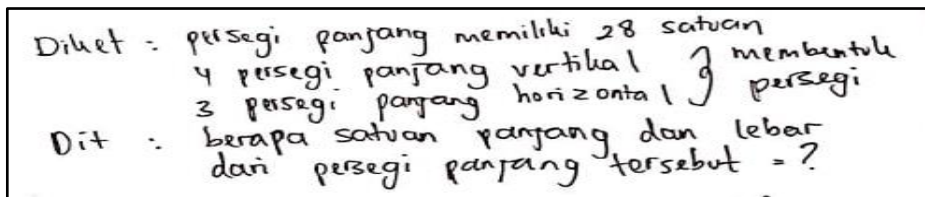 Diket : persegi panjang memiliki 28 satuan
4 persegi panjang vertikal
3 persegi panjang horizontal } membentuk persegi
Dit : berapa satuan panjang dan lebar
dari persegi panjang tersebut = ?